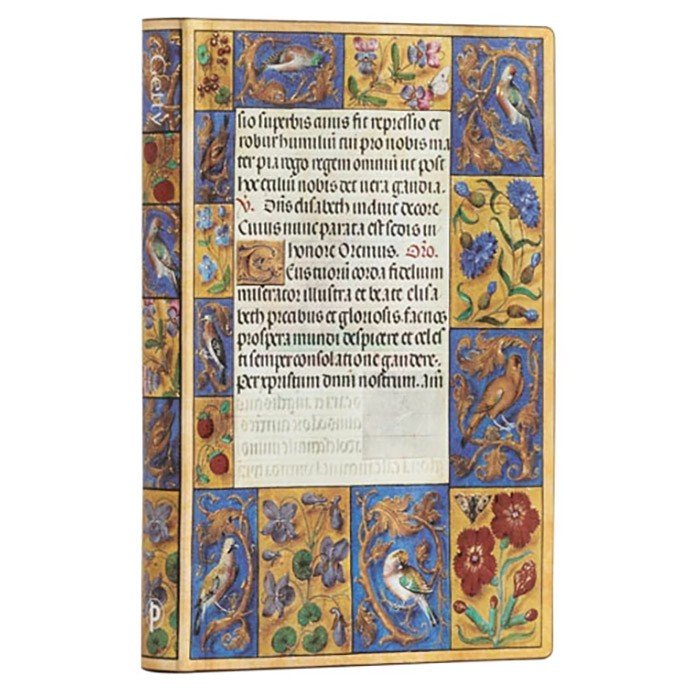 Getty
sio superbis cuius fit repressio et
robur humiliū cui pro nobis ma
ter pia rogo regem omniū ut post
hoc exiliū nobis det uera gaudia.
V. Ons elisabeth indiue decore.
Cuius nunc parata est sedis in
honore Oremus. Oro.
Eustuorū corda fidelium
miserator illustra et beate elisa
beth precibus et gloriosis fac nos
prospera mundi despicere et celes
ti semper consolatione gaudere.
per xpristum dnm̄ nostrum. am̄
P